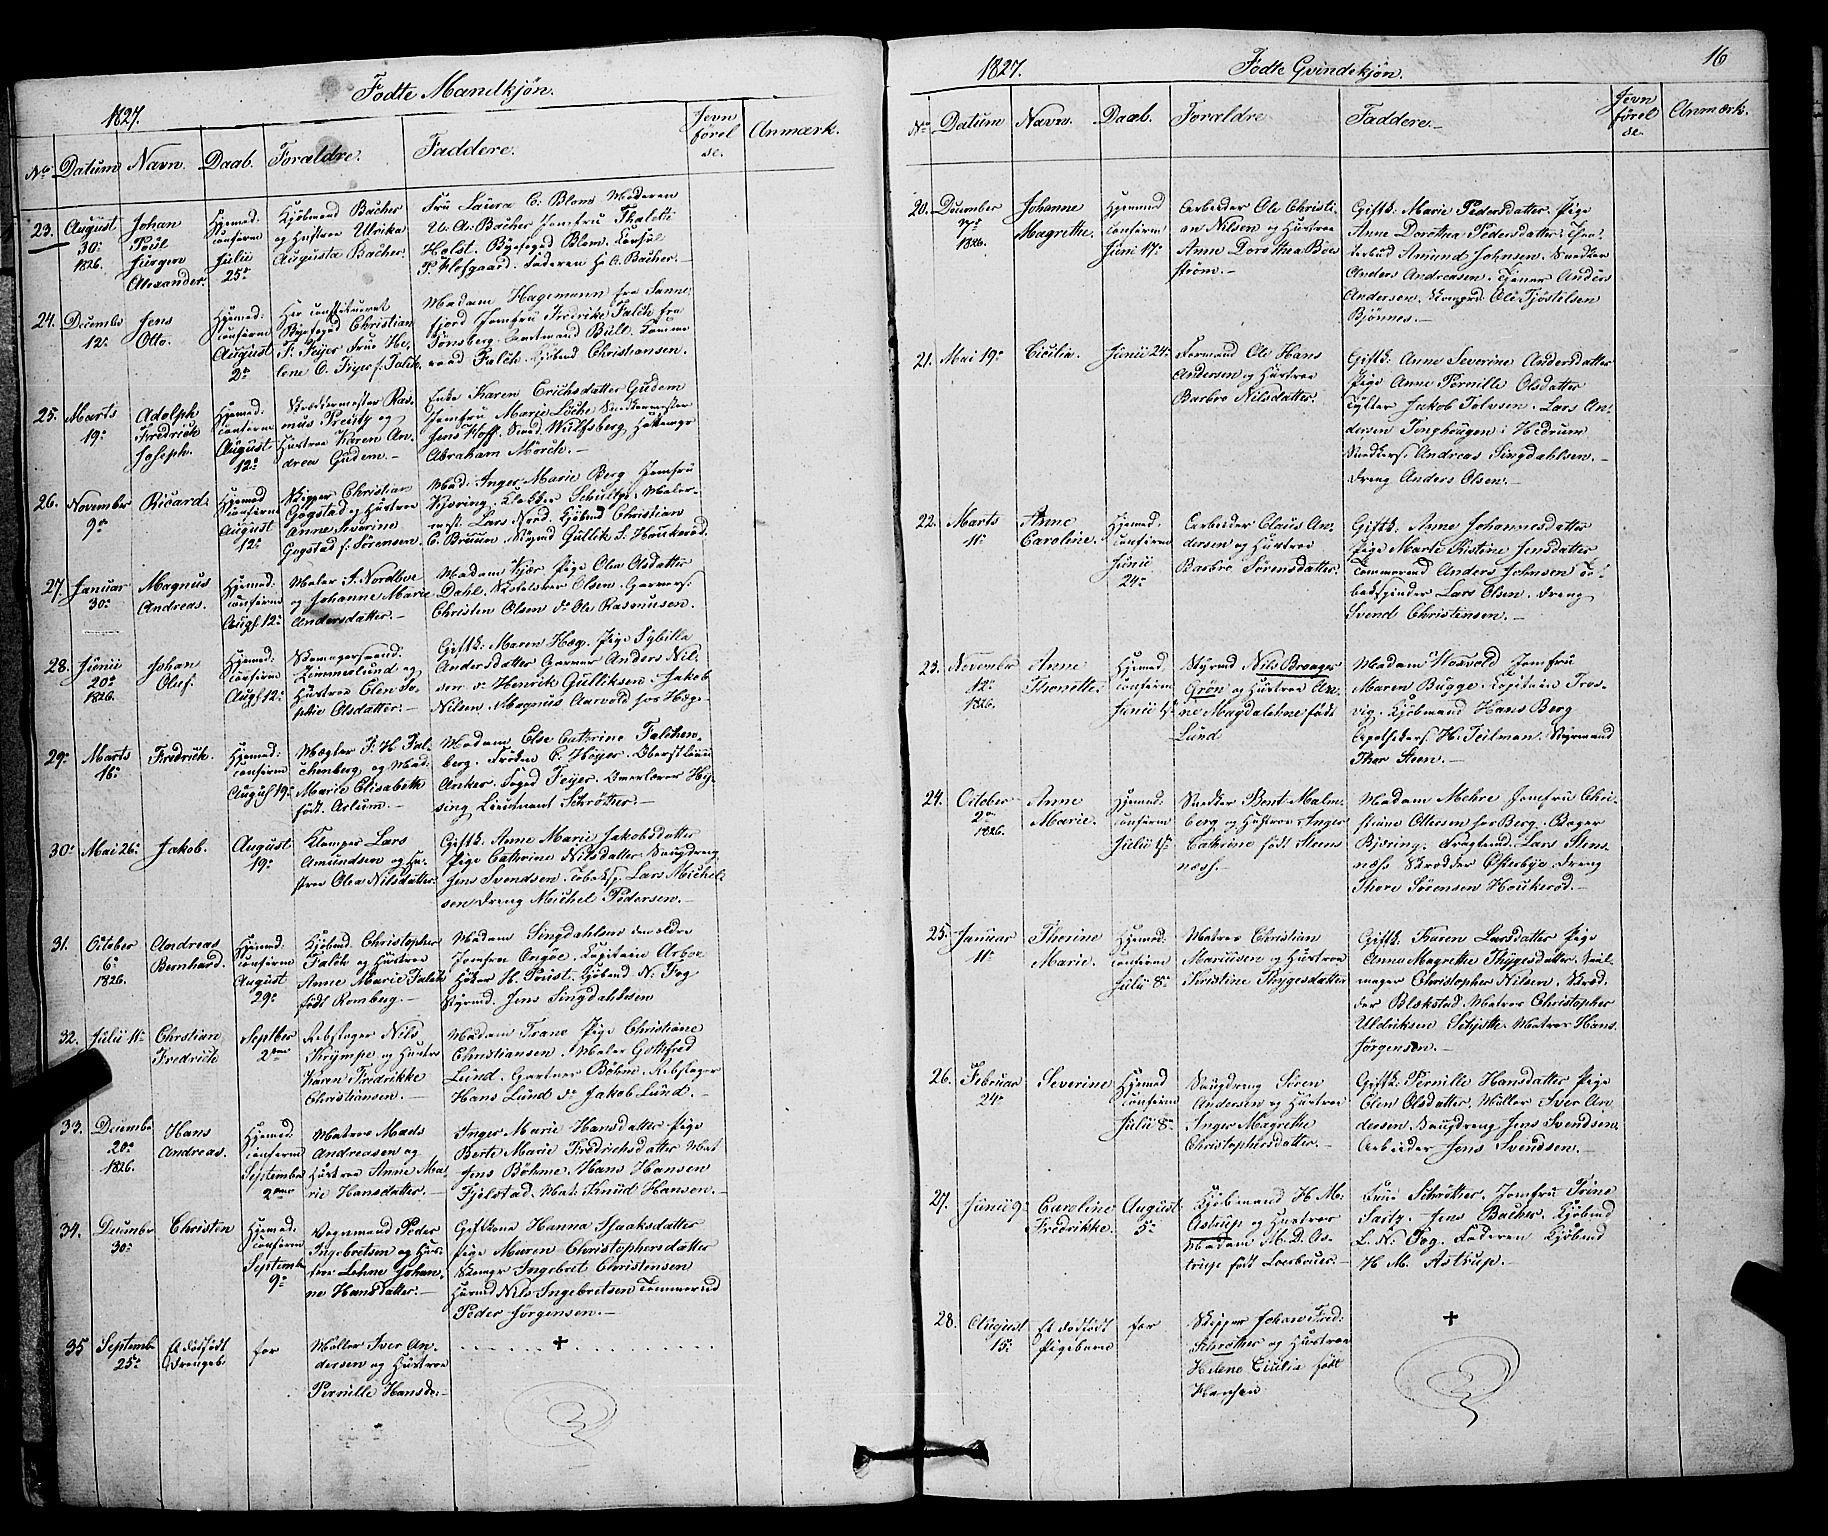 Fodte Mandkjön.
1827.
No Datum Navn. Daab. Foraldre. Faddere. Jevnförelse. Anmærk.
23. August 30te 1826. Johan Poul Jürgen Alexander.
Hjemmed: confirm Julii 25de
Kjöbmand Bacher
og Hustroe Ulrika
Augusta Bacher.
Fru Laura C. Blom Moderen
U. A. Bacher Jomfru Thalette
Holst. Byefoged Blom. Consul
P. Flofgaard. Faderen H. C. Bacher.
24. Decembr 12te Jens Otto.
Hjemmed: Confirm August 2de
Christian
F. Feyer Frue He-
lene C. Feyer f. Falck.
Madam Hagemann fra Sanne-
fjord Jomfru Fredrike Falck fra
Tönsberg. Amtmand Bull. Comme-
raad Falck. Kjöbmd Christiansen.
25. Marts 19de Adolph Fredrich Joseph.
Hjemmed: confirm August 12te
Skreddermester Ras-
mus Preutz og
Hustroe Karen An-
drea Gudem.
Enke Karen Erichsdatter Gudem
Jomfru Marie Löche Snedkermester
Jens Hoff. Smed. Wulfsberg,
Abraham Mörch.
26. November 9de Ricard.
Hjemmed confirm August 12te
Skipper Christian
Gogstad og Hustroe
Anne Severine
Gogstad f: Sörensen.
Mad: Anger Marie Berg Jomfru
Kjvring. Klokker Schultze. Maler-
mest: Lars Nord. Kjöbmd Christian
C. Bruun. Styrmd Gullik L. Haukeröd.
27. Januar 30te Magnus Andreas.
Hjemmed: confirm Augst 12te
Maler S. Nordboe
og Johanne Marie
Andersdatter.
Madam Kjær Pige Olea Olsdatter
Dahl. Skolelærer Olsen. Garvers:
Christen Olsen do Ole Rasmusen.
28. Junii 20de 1826. Johan Oluf.
Hjemmed: confirm Augst 12te
Skomagersvend:
Zimmerlund og
Hustroe Elen So-
phie Olsdatter.
Giftk: Maren Hæg. Pige Sybilla
Andersdatter Garver Anders Nil-
sen do Henrik Gulliksen. Jakob
Nilsen. Magnus Aarvold hos Höye
29. Marts 16de Fredrich.
Hjemmed: confirm August 19de
Mægler F. H. Fal-
chenberg og Mad:
Marie Elisabeth
född Arlum.
Madam Else Cathrine Falchen-
berg. Fröken C. Höyer. Oberstlieut
Anker. Foged Feyer. Overlærer Hy-
sing Lieutnant Schrötter.
30. Mai 26de Jakob. August 19de
Klamper Lars
Amundsen og Hu-
stroe Olea Nilsdatter.
Giftk: Anne Marie Jakobsdatter
Pige Cathrine Nilsdatter. Saugdreng
Jens Svendsen. Tobaksp. Lars Michel-
sen Dreng Michel Pedersen.
31. October 6te 1826. Andreas Bernhard.
Hjemmed: confirm August 29de
Kjöbmd Christopher
Falck og Hustroe
Anne Marie Falck
född Romberg.
Madam Singdahlsen den eldre
Jomfru Angöe. Capitain Arboe
Höker H. Priist. Kjöbmd N. Fog
Styrmd. Jens Singdahlsen
32. Julii 11te Chrstian Fredrich Septber 2den
Rebslager Nils
Krympe og Hustroe
Karen Fredrikke
Christiansen.
Madam Trane Pige Christiane
Christiansen. Maler Gottfred
Lund. Gartner Böhm. Rebslager
Hans Lund do Jakob Lund.
33. Decembr 20de 1826. Hans Andreas.
Hjemmed: confirm September 2den
Matros Mads
Andreasen og
Hustroe Anne Ma-
rie Hansdatter.
Inger Marie Hansdatter Pige
Berte Marie Fredrichsdatter Mat
Jens Böhme. Hans Hansen
Fjelstad. Mat: Knud Hansen.
34. Decembr 30te Christen
Hjemmed: confirm Septembr 9de
Vognmand Peder
Ingebretsen og Hus-
troe Lehne Johan-
ne Hansdatter.
Giftkone Hanna Isaaksdatter
Pige Maren Christophersdatter
Skomgr Ingebret Christensen
Huusmd Nils Ingebretsen Tömmermd
Peder Jörgensen.
35 Septembr 25de Et dödfödt Drengeb. for
Möller Iver An-
dersen og Hustroe
Pernille Hansdr:
+
1827. Fodte Qvindekjön. 16
No Datum Navn. Daab. Foraldre Faddere. Jevnförelse. Anmærk.
20. December 17de 1826. Johanne Magrethe.
Hjemmed confirm Junii 17de
Arbeider Ole Christi-
an Nilsen og Hustroe
Anne Dorothea Boe-
ström.
Giftk: Marie Pedersdatter. Pige
Anne Dorothea Pedersdatter.
Amund Johnsen. Snedker
Anders Andreasen. Tjener Anders
Andersen. Skomgrd. Ole Tjöstelsen
Bjönnes.
21. Mai 19de Cicilia. Junii 24de
Formand Ole Hans
Andersen og Hustroe
Barbro Nilsdatter.
Giftk: Anne Severine Andersdatter
Pige Anne Pernille Olsdatter
Jakob Tolvsen. Lars An-
dersen Tinghougen i Hedrum
Snedkers: Andreas Singdahlsen.
Dreng Anders Olsen.
22. Marts 11te Anne Caroline.
Hjemmed. confirm Junii 24de
Arbeider Claus An-
dersen og Hustroe
Barbro Sörensdatter.
Giftk: Anne Johannesdatter
Pige Marte Kistine Jensdatter
Tömmermd Anders Johnsen To-
bakspinder Lars Olsen. Dreng
Svend Christensen.
23. November 12te 1826. Anne Thonette.
Hjemmed: confirm Junii
Styrmd Nils Bronger
Grön og Hustroe An-
ne Magdalehne född
Lund
Madam Worvold Jomfru
Maren Bugge. Capitain Tros-
vig. Kjöbmand Hans Berg
Apothekers H. Teilman. Styrmand
Thor Steen.
24. October 2den 1826. Anne Marie.
Hjemmed. confirm Julii
Snedker Bent Malm-
berg og Hustroe Anger
Cathrine född Steens-
næss.
Madam Mehre Jomfru Chri-
stiane Ottersen hos Berg. Bager
Bjoring. Dragtmd: Lars Stens-
næss Skredder Österbye. Dreng
Thore Sörensen Houkeröd.
25. Januar 11te Thorine Marie.
Hjemmed: confirm Julii 8de
Matros Christian
Mariusen og Hustroe
Kirstine Thygesdatter
Giftk: Karen Larsdatter Pige
Anne Magrethe Thygesdatter. Seil-
mager Christopher Nilsen. Skred-
der Blækstad. Matros Christopher
Uldriksen Schjette. Matros Hans
Jörgensen.
26. Februar 24de Severine
Hjemmed Confirm Julii 8de
Saugdreng Sören
Andersen og Hustroe
Anger Magrethe
Christophersdatter.
Giftk: Pernille Hansdatter Pige
Elen Olsdatter. Möller Iver An-
dersen. Saugdreng Jens Svendsen.
Arbeider Jens Svendsen.
27. Junii 9de Caroline Fredrikke. August 5te
Kjöbmand H. M.
Astrup og Hustroe
Madam M. D. As-
trup född Loerbouer.
Frue Schrötter. Jomfru Trine
Saitz. Jens Bacher. Kjöbmd
L. N: Fog. Faderen Kjöbmd
H. M. Astrup.
28. August 15de Et dödfödt Pigebarn for
Skipper Johan Fred:
Schrötter og Hustroe
Helene Cicilia född
Hansen
+